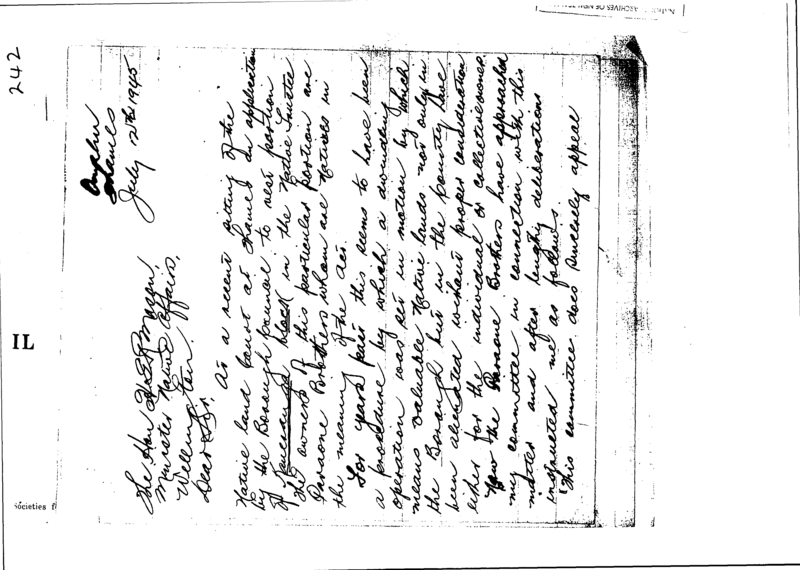 242
IL
Societies f
ARCHIVES OF NEW
Thames
July 12th 1945
The Hon H G R Mason
Minister Native Affairs,
Wellington.
Dear Sir.
At a recent sitting of the
Native Land Court at Thames an application
by the Borough Council to vest portion
of block in the Native Trustee
The owners of this particular portion are
Parsone Brothers whom are Natives in
the meaning of the act.
For years past this seems to have been
a procedure by which a dwindling
operation was set in motion by which
means valuable Native lands not only in
the Borough but in the County have
been alienated without proper consideration
either for the individual or collective owner
Now the Parsone Brothers have approached
my committee in connection with this
matter and after lengthy deliberations
instructed me as follows.
"This committee does sincerely appeal